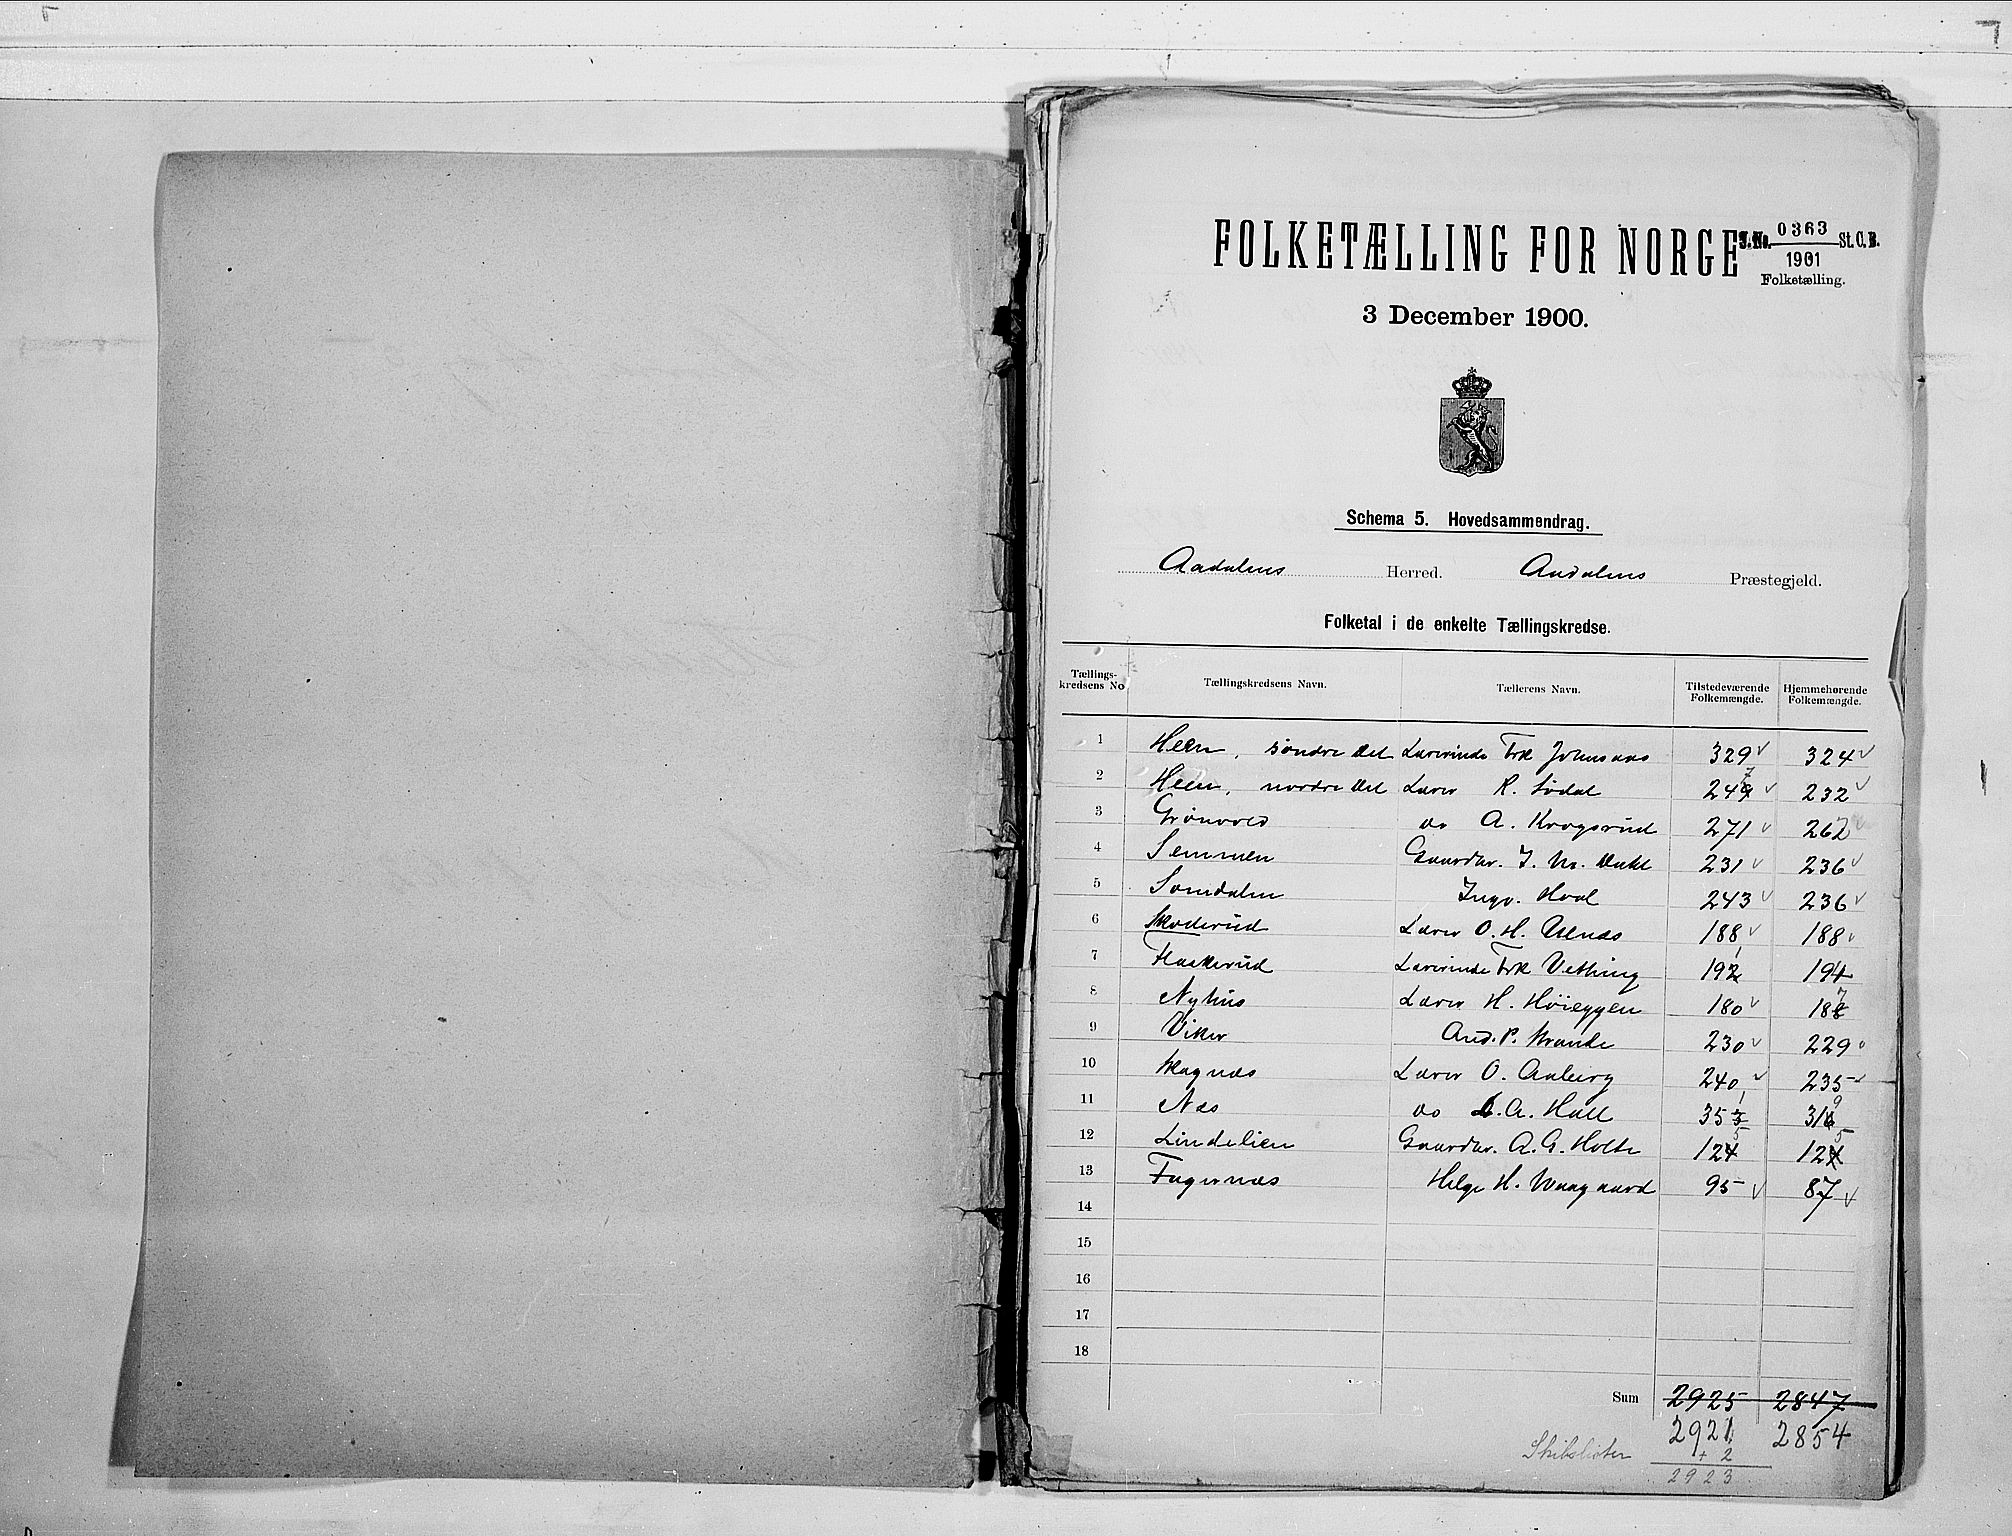 FOLKETÆLLING FOR NORGE
J. No. 0363 St. C. B.
1901
Folketælling.
3 December 1900.
Schema 5. Hovedsammendrag.
Aadalens Herred. Aadalens Præstegjeld.
Folketal i de enkelte Tællingskredse.
Tællings-kredsens No Tællingskredsens Navn. Tællerens Navn. Tilstedeværende Folkemængde. Hjemmehørende Folkemængde.
1 Heen, søndre del Lærerinde Frk Johnsaas 329 324
2 Heen, nordre del Lærer R. Sødal 247 232
3 Grønvold do A. Krogsrud 271 262
4 Semmen Gaardbr. 231 236
5 Somdalen Ingv. Hval 243 236
6 Skoderud Lærer O. H. 188 188
7 Haskerud Lærerinde Frk Vetting 191 194
8 Nyhus Lærer H. Høieggen 180 187
9 Viker And. P. Strande 230 229
10 Skagnæs Lærer O. Aaberg 240 235
11 Næs do A. Hall 351 319
12 Lindelien Gaardbr. A. G. Holte 125 125
13 Fagernæs Helge H. Waagaard 95 87
14
15
16
17
18
Sum 2925 2847
2921 2854
Skibslister + 2
2923